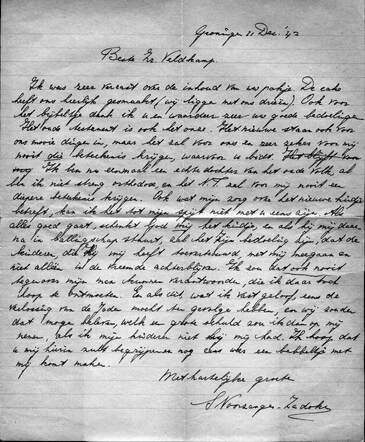 Groningen 21 Dec. '42
Beste Zr. Veldkamp.
Ik was zeer verrast over de inhoud van uw pakje. De cake
heeft ons heerlijk gesmaakt (wij liggen met ons drieën) Ook voor
het bijbeltje dank ik u en waardeer zeer uw goede bedoelingen
Het oude testament is ook het onze. Het nieuwe staan ook voor
ons mooie dingen in, maar het zal voor ons en zeer zeker voor mij
nooit die betekenis krijgen, waarvoor u bidt.
Ik ben nu eenmaal een echte dochter van het oude Volk, al
ben ik niet streng orthodox, en het N.T. zal voor mij nooit een
diepere betekenis krijgen. Ook wat mijn zorg om het nieuwe kindje
betreft, kan ik het tot mijn spijt niet met u eens zijn. Als
alles goed gaat, schenkt God mij het kindje, en als hij mij daar
na in ballingschap stuurt, zal het zijn bedoeling zijn, dat de
kinderen, die Hij mij heeft toevertrouwd, met mij meegaan en
niet alleen in de vreemde achterblijven. Ik zou dat ook nooit
tegenover mijn man kunnen verantwoorden, die ik daar toch
hoop te ontmoeten. En als dit wat ik vast geloof eens de
verlossing van de Joden mocht ten gevolge hebben, en wij zouden
dat mogen beleven, welk een grote schuld zou ik dan op mij
nemen, als ik mijn kinderen niet bij mij had. Ik hoop, dat
u mij hierin zult begrijpen en nog eens weer een babbeltje met
mij komt maken.
Met hartelijke groeten
S Noorzanger-Zadoks